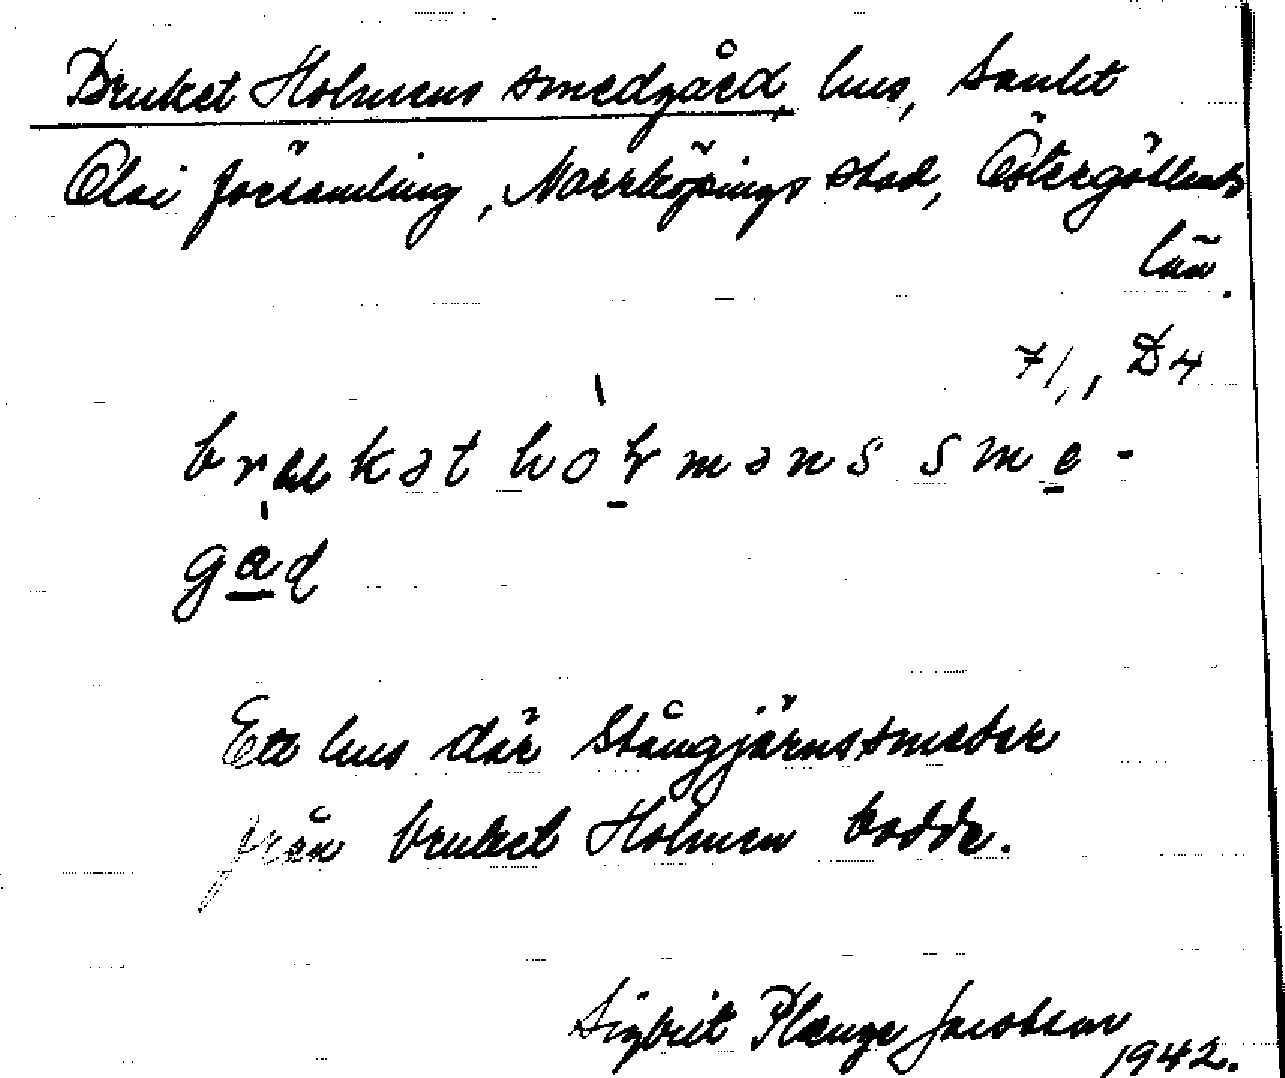 Bruket Holmens smedgård, hus, Sankt
Olai församling, Norrköpings stad, Östergötlands
län.
7/1, D4
brukət holməns sme-
gaḍ
Ett hus där stångjärnssmeder
från bruket Holmen bodde.
Sigbrit Plænge Jacobson
1942.